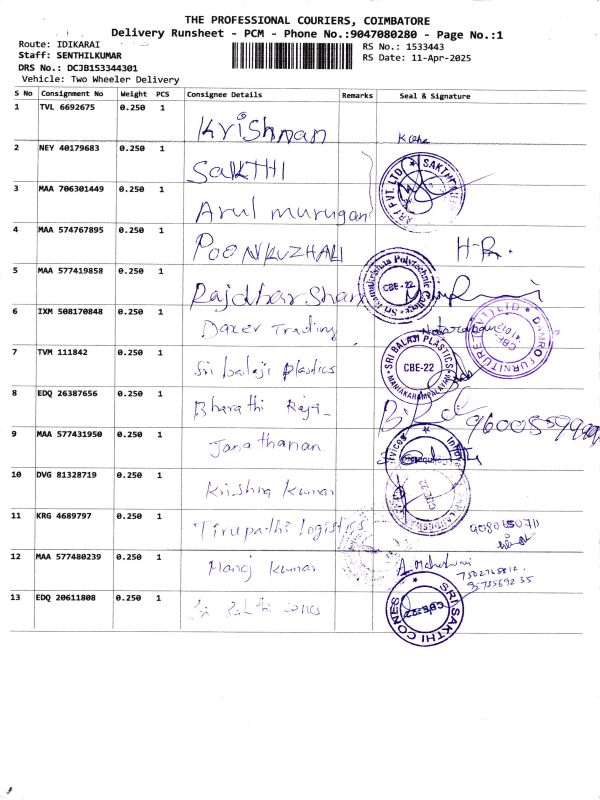 THE PROFESSIONAL COURIERS, COIMBATORE
Delivery Runsheet - PCM - Phone No.:9047080280 - Page No.:1
Route: IDIKARAI RS No.: 1533443
Staff: SENTHILKUMAR RS Date: 11-Apr-2025
DRS No.: DCJB153344301
Vehicle: Two Wheeler Delivery
S No Consignment No Weight PCS Consignee Details Remarks Seal & Signature
1 TVL 6692675 0.250 1 Krishnan
2 NEY 40179683 0.250 1 SAKTHI
3 MAA 706301449 0.250 1 Arul murugan
4 MAA 574767895 0.250 1 POONKUZHALI H-R.
5 MAA 577419858 0.250 1 Rajdhar Sharma Sri Ramakrishna Polytechnic College CBE-22
6 IXM 508170848 0.250 1 Daxer Trading
7 TVM 111842 0.250 1 Sri balaji plastics SRI BALAJI PLASTICS MANIAKARAMPALAYAM CBE-22
8 EDQ 26387656 0.250 1 Bharathi Raja
9 MAA 577431950 0.250 1 Janathanan
10 DVG 81328719 0.250 1 Krishna Kumar
11 KRG 4689797 0.250 1 Tirupathi Logistics
12 MAA 577480239 0.250 1 Manoj Kumar A. Maheshwari
13 EDQ 20611808 0.250 1 Sri Sakthi cones SRI SAKTHI CONES CBE-22